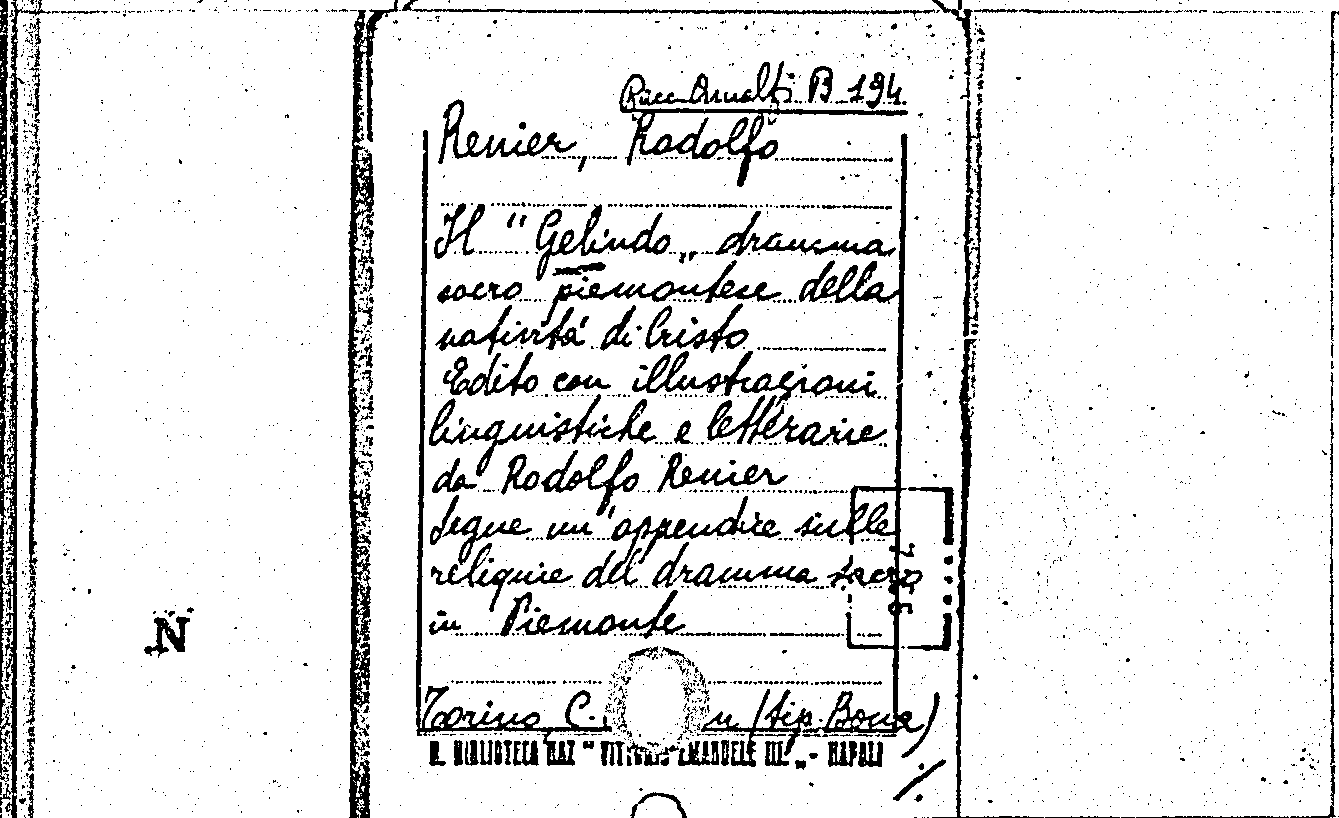 Racc. Arnalfi B 194
Renier, Rodolfo
Il "Gelindo„ dramma
sacro piemontese della
natività di Cristo
Edito con illustrazioni
linguistiche e letterarie
da Rodolfo Renier
Segue un'appendice sulle
reliquie del dramma sacro
in Piemonte
N
Torino, C. (tip. Bona)
R. BIBLIOTECA NAZ "VITTORIO EMANUELE III„ - NAPOLI